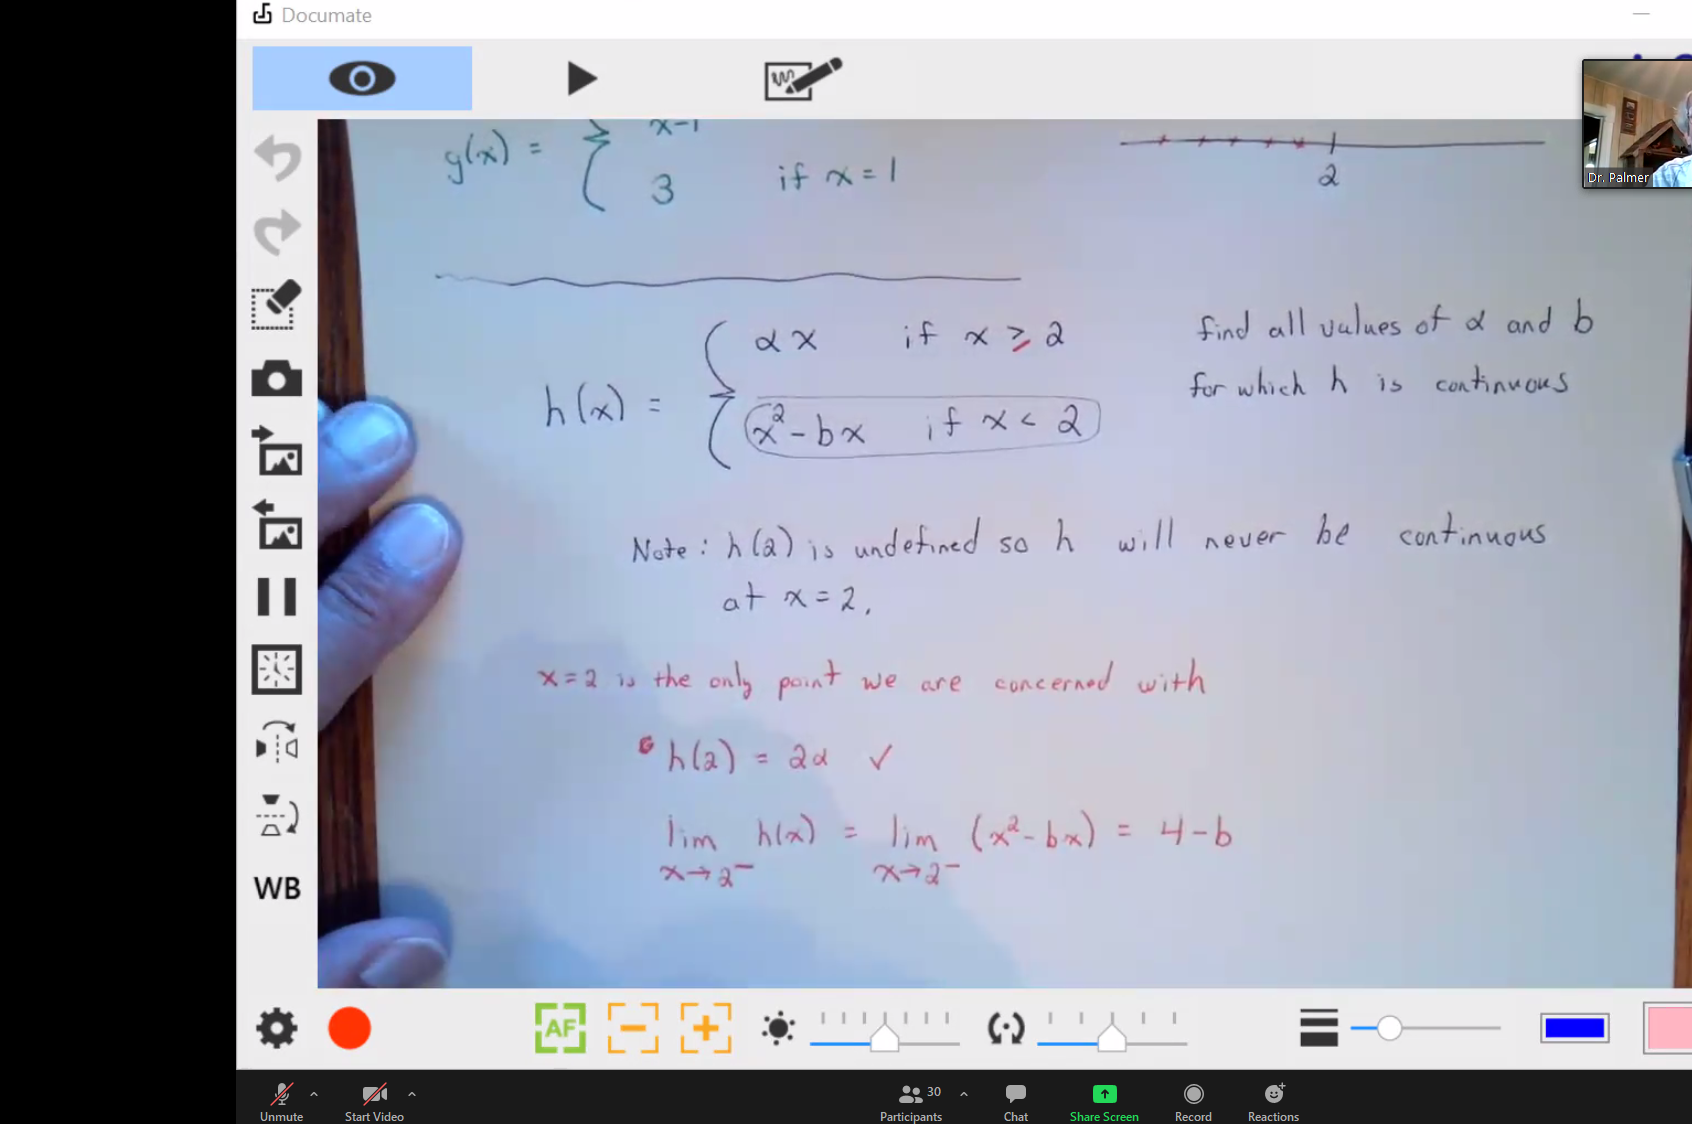 Documate
g(x) = { x-1
3 if x = 1
2
Dr. Palmer
h(x) = { αx if x ≥ 2
x² - bx if x < 2
find all values of α and b
for which h is continuous
Note: h(2) is undefined so h will never be continuous
at x = 2.
x = 2 is the only point we are concerned with
h(2) = 2α ✓
lim h(x) = lim (x² - bx) = 4 - b
x→2⁻ x→2⁻
WB
AF
Unmute
Start Video
Participants 30
Chat
Share Screen
Record
Reactions